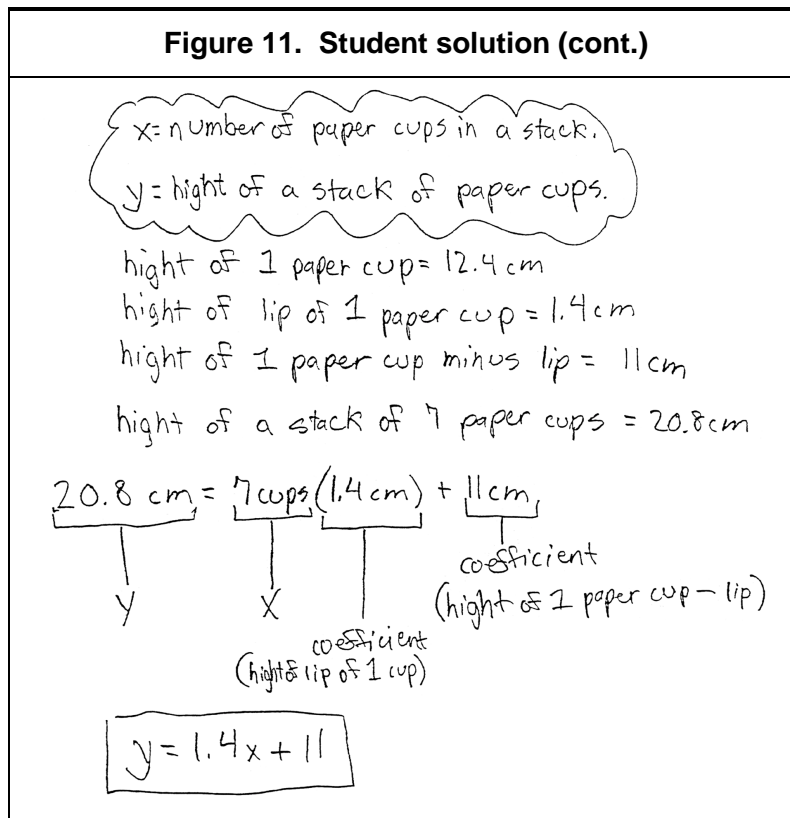 Figure 11. Student solution (cont.)
x= number of paper cups in a stack.
y= hight of a stack of paper cups.
hight of 1 paper cup= 12.4 cm
hight of lip of 1 paper cup = 1.4 cm
hight of 1 paper cup minus lip = 11cm
hight of a stack of 7 paper cups = 20.8cm
20.8 cm = 7cups (1.4 cm) + 11cm
coefficient
(hight of 1 paper cup - lip)
y
X
coefficient
(hight of lip of 1 cup)
y= 1.4x + 11